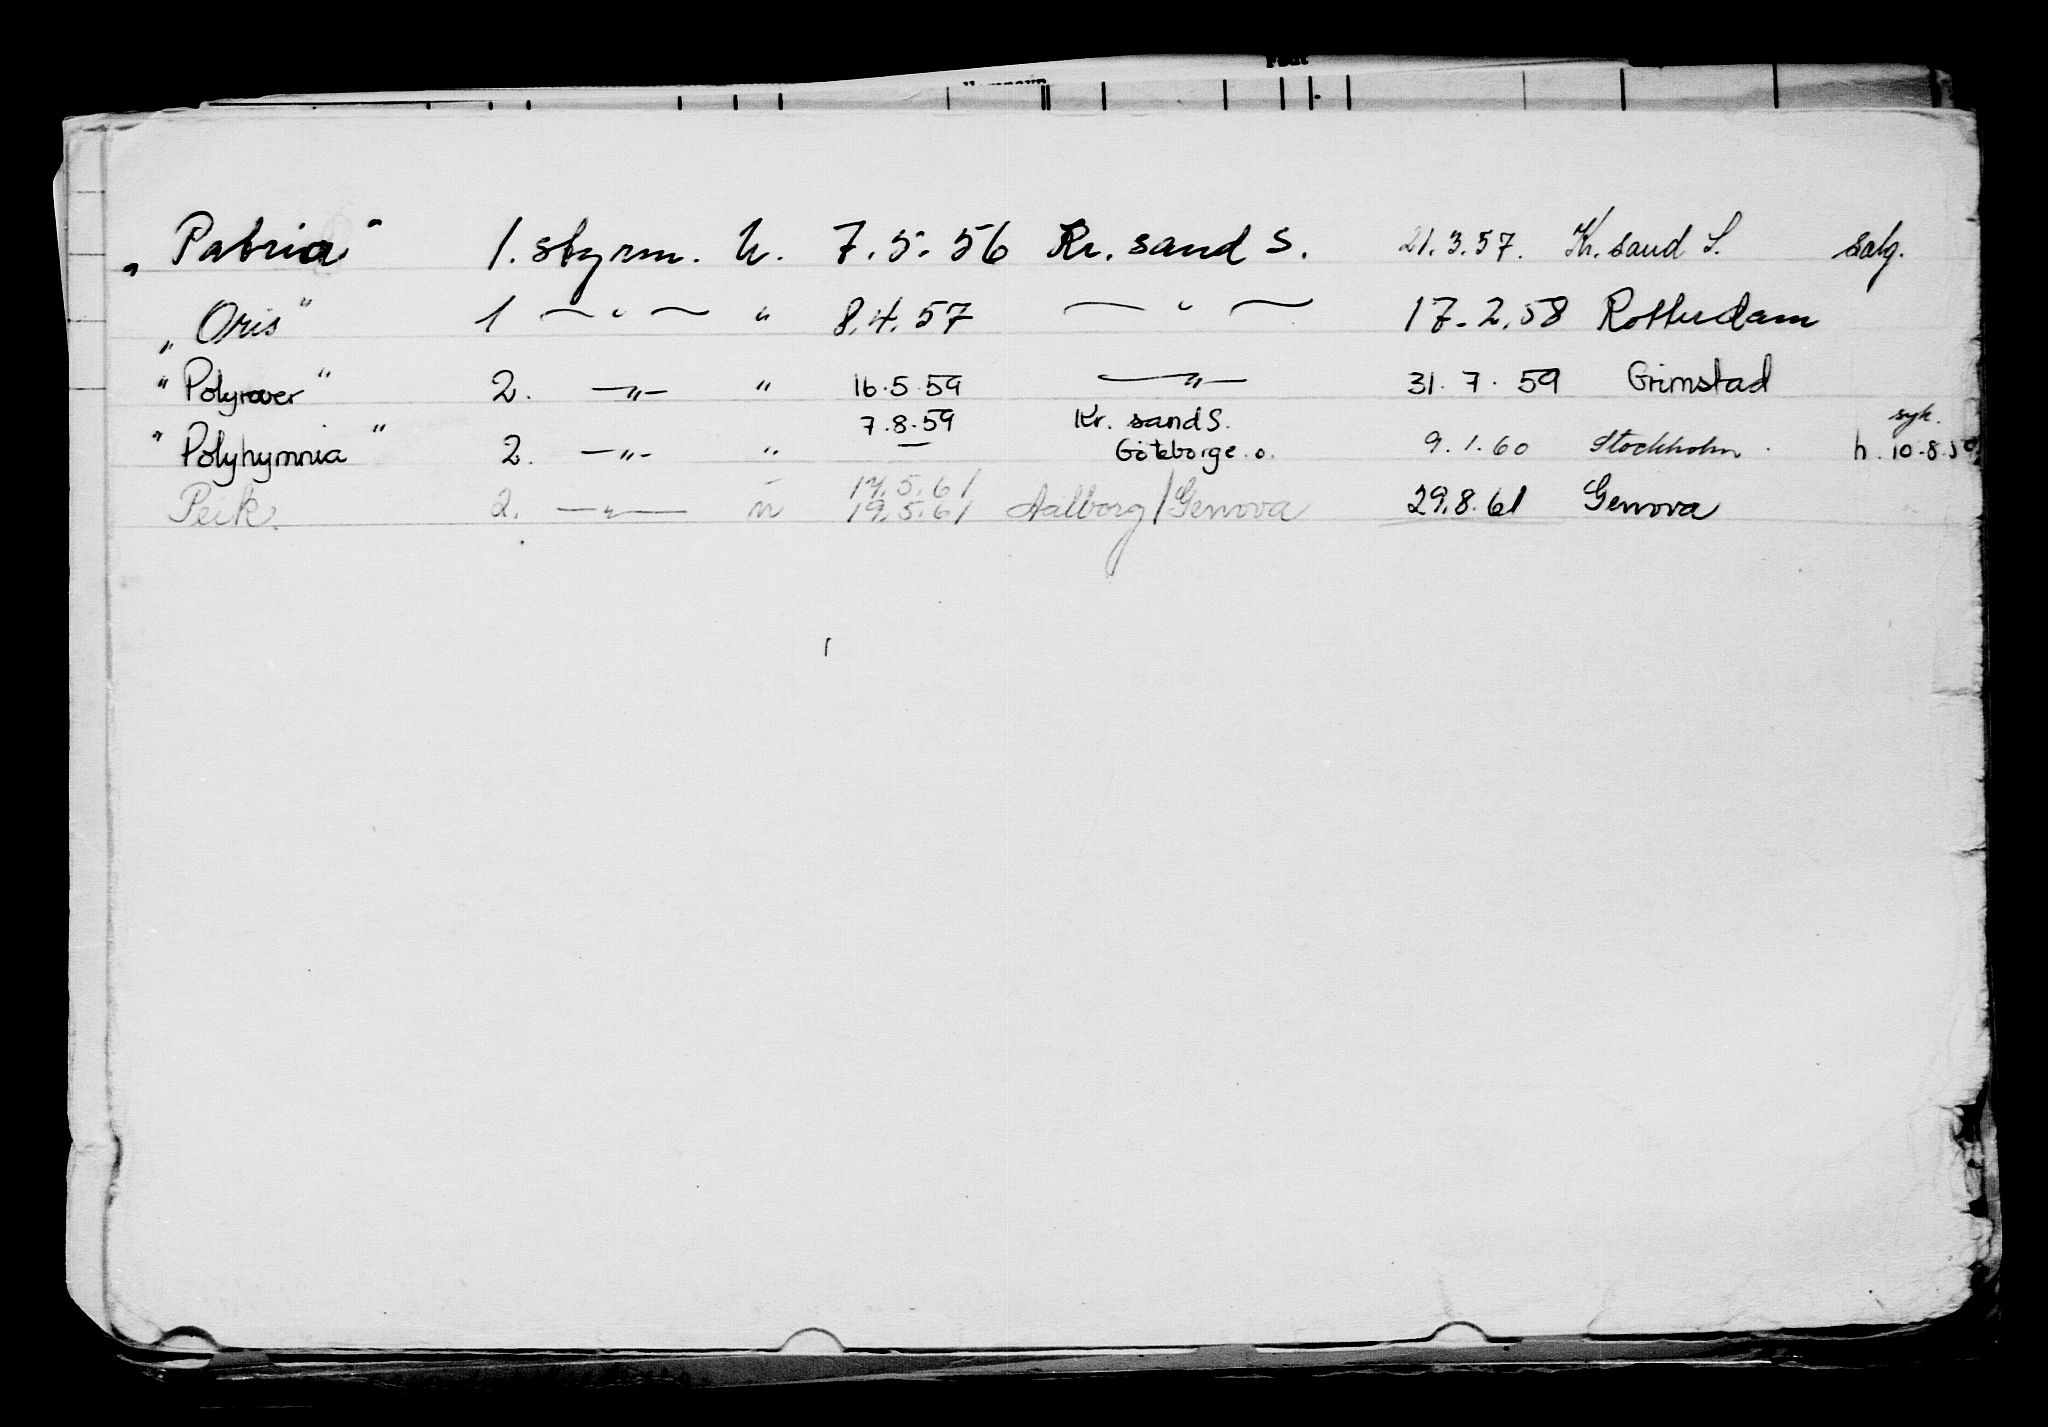 Født
„Patria" 1. styrm. u. 7.5.56 Kr. sand S. 21.3.57. Kr. sand S. salg.
„Oris" 1 — " — " 8.4.57 — " — 17.2.58 Rotterdam
"Polyrover" 2. —"— " 16.5.59 —"— 31.7.59 Grimstad
7.8.59 Kr. sand S. syk.
"Polyhymnia" 2. —"— " — Göteborge.o. 9.1.60 Stockholm. h. 10.8.59
17.5.61
Peik. 2. —"— u 19.5.61 Aalborg/Genova 29.8.61 Genova